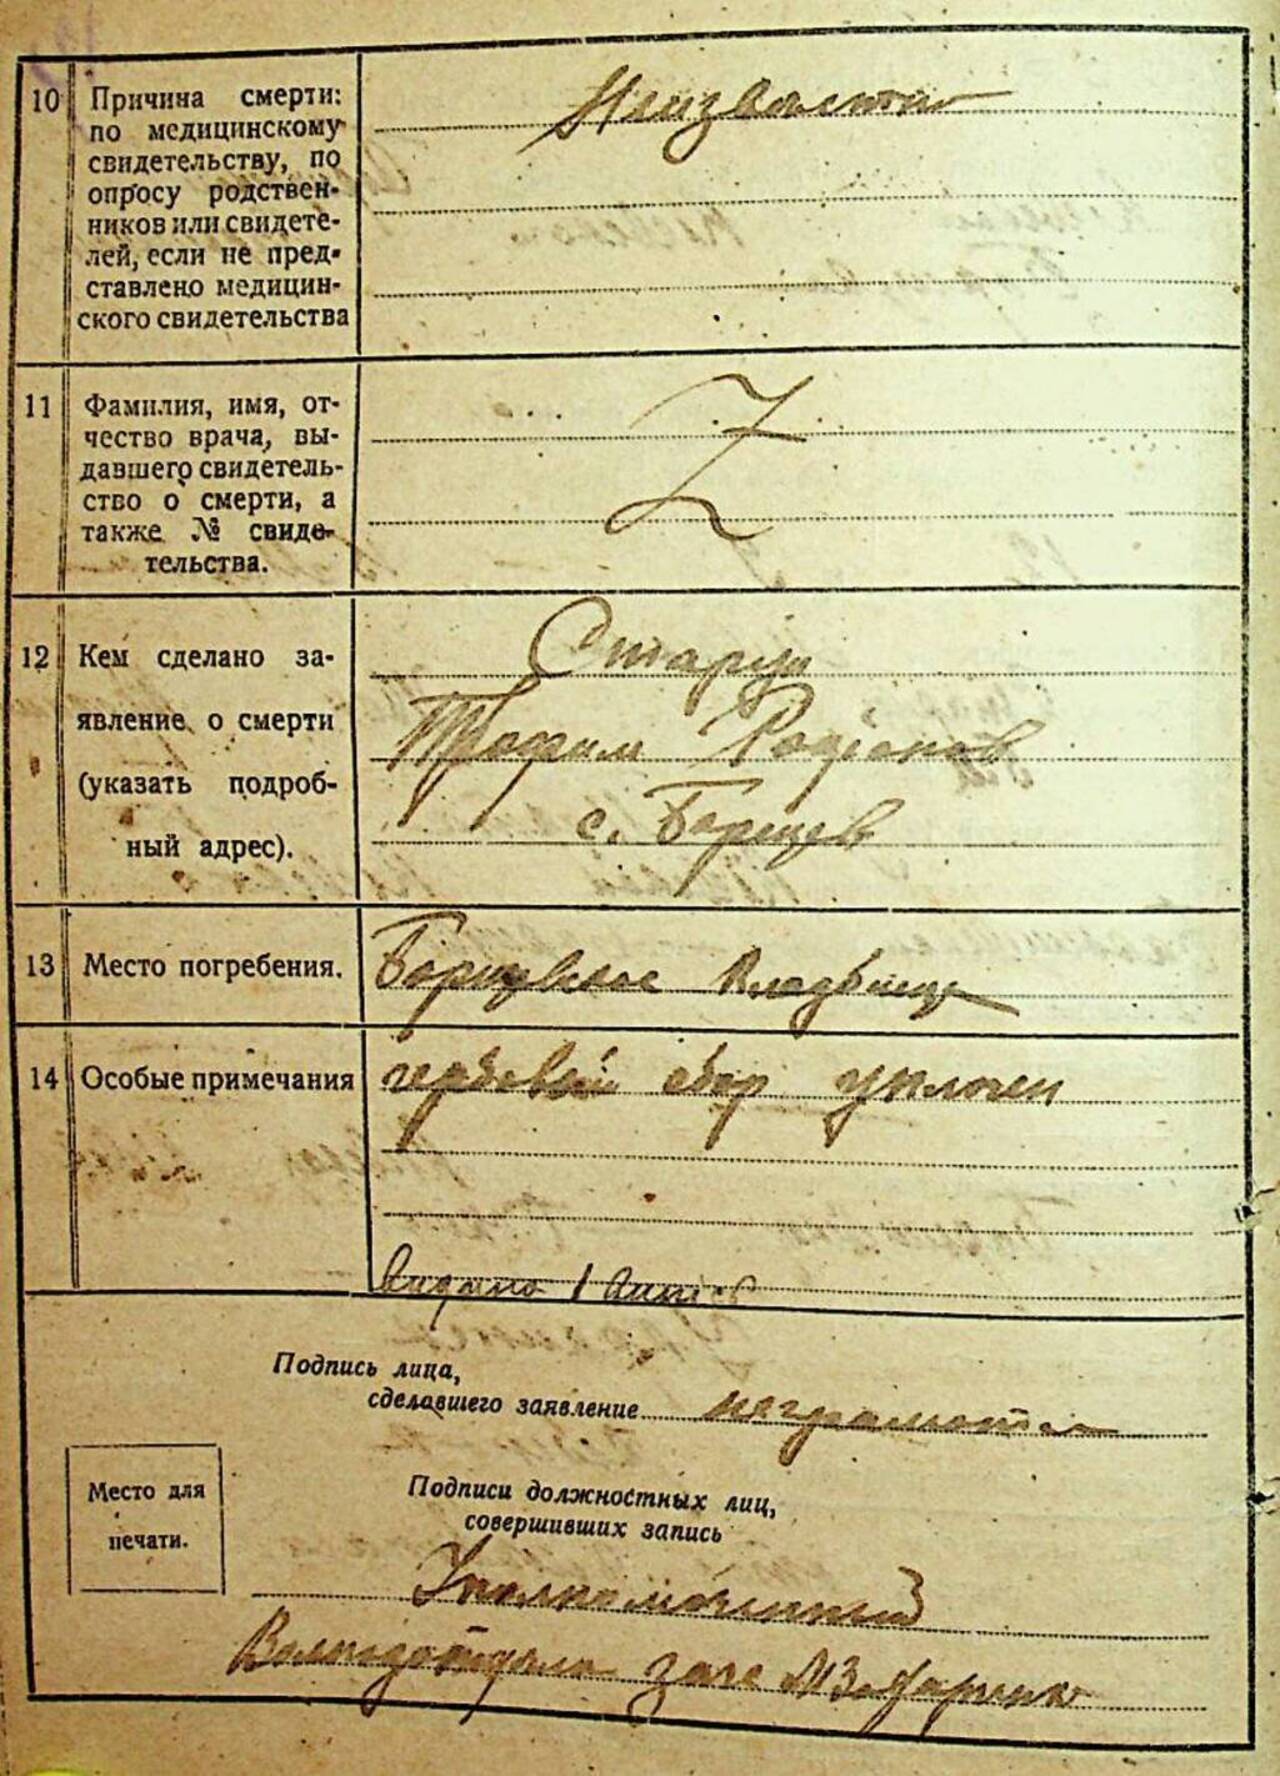 10 Причина смерти:
по медицинскому
свидетельству, по
опросу родствен-
ников или свидете-
лей, если не пред-
ставлено медицин-
ского свидетельства
Неизвестна
11 Фамилия, имя, от-
чество врача, вы-
давшего свидетель-
ство о смерти, а
также № свиде-
тельства.
Z
12 Кем сделано за-
явление о смерти
(указать подроб-
ный адрес).
Трофим Родионов
с. Борщев
13 Место погребения.
Борщевское Кладбище
14 Особые примечания
гербовый сбор уплочен
Подпись лица,
сделавшего заявление неграмотен
Место для
печати.
Подписи должностных лиц,
совершивших запись
Уполномоченный